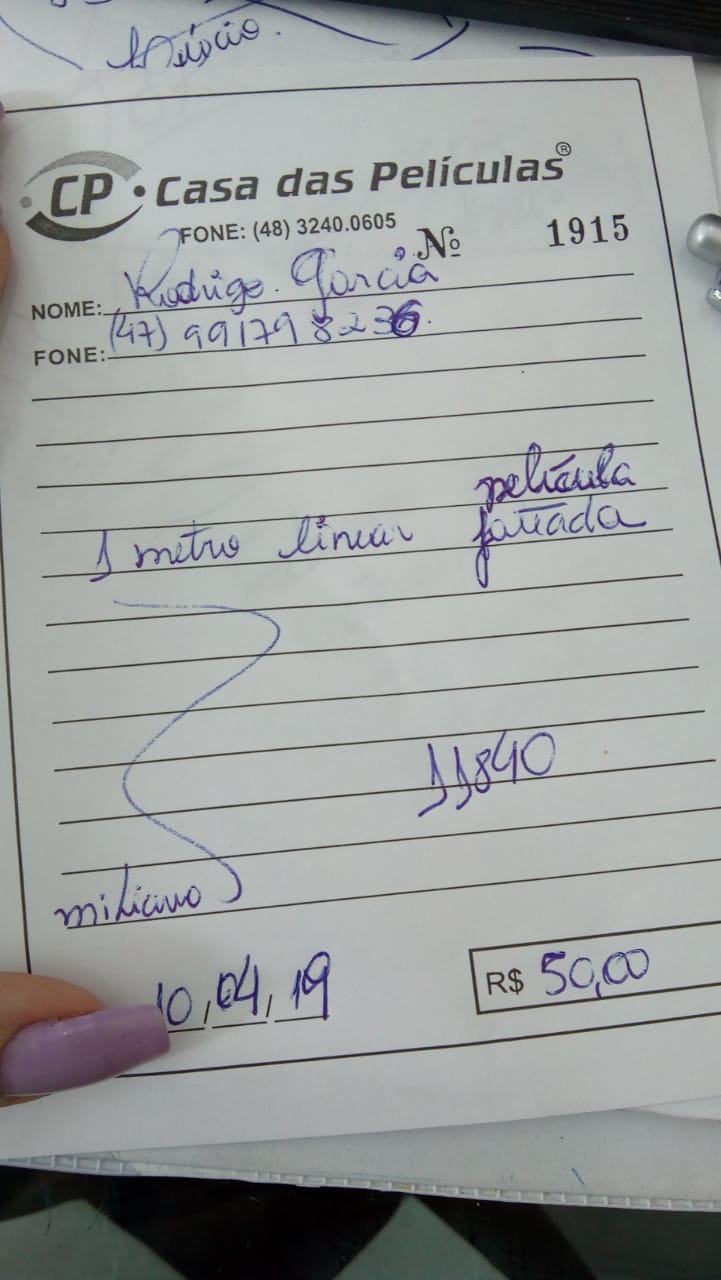 CP • Casa das Películas®
FONE: (48) 3240.0605
Nº 1915
NOME: Rodrigo Garcia
FONE: (47) 991798236
película
1 metro linear jateada
11840
miliano
10, 04, 19
R$ 50,00